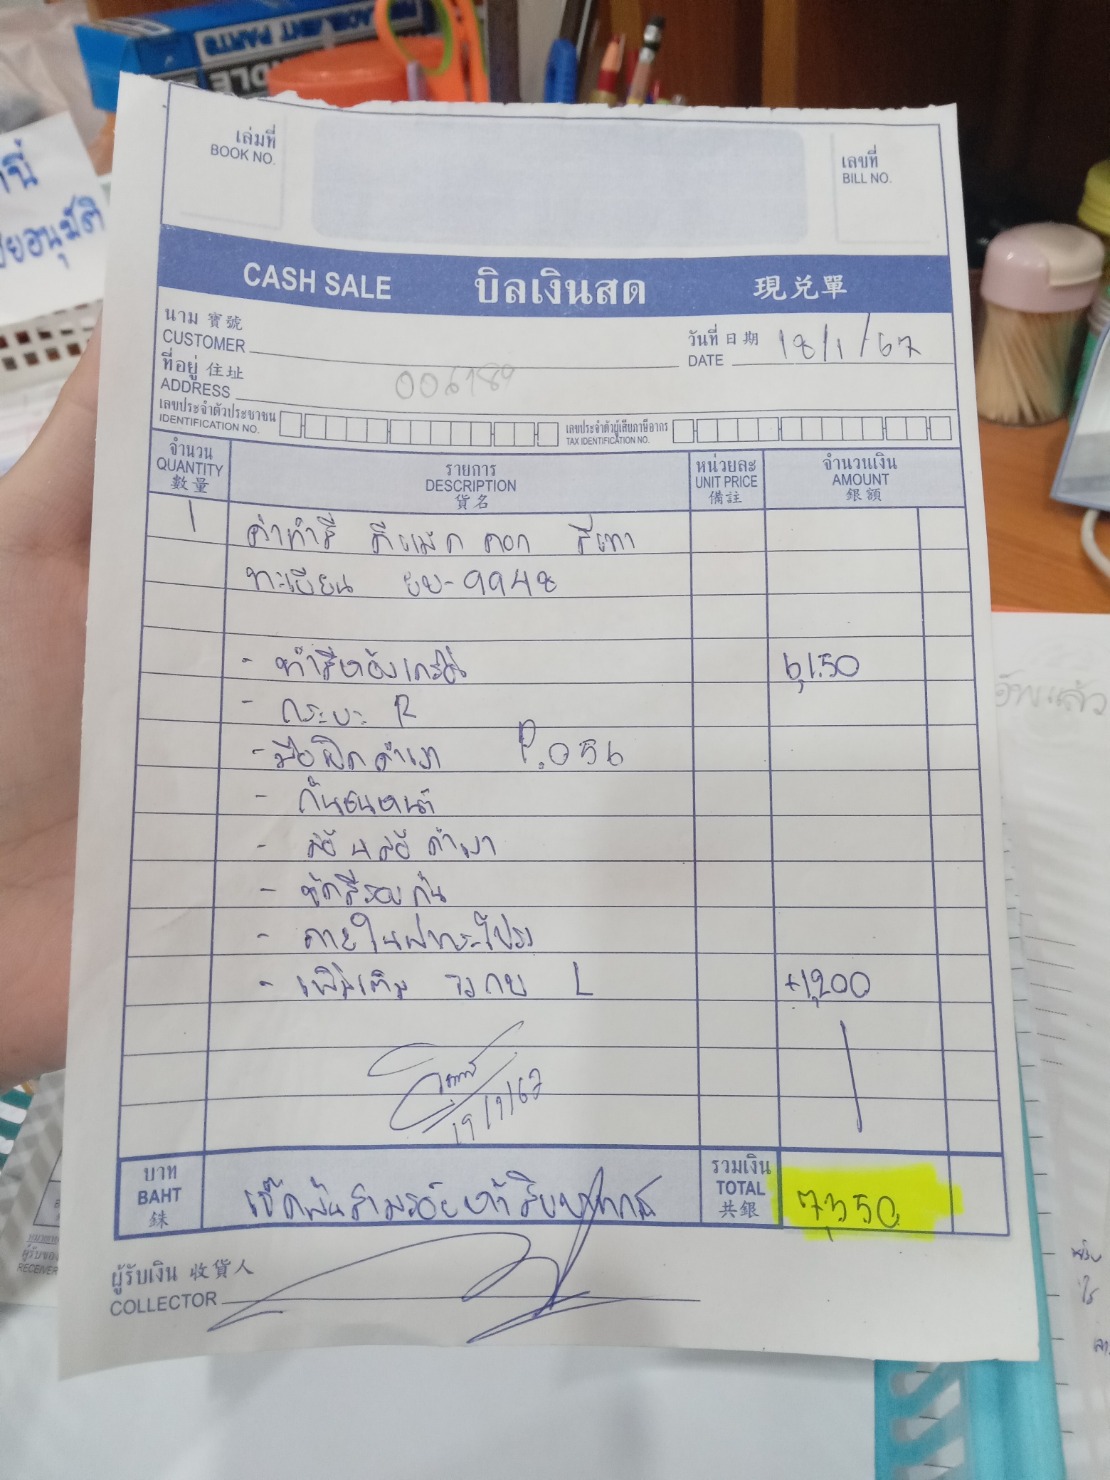 REPLACEMENT PARTS
เล่มที่
BOOK NO.
เลขที่
BILL NO.
CASH SALE บิลเงินสด 現兑單
นาม 寶號
CUSTOMER
วันที่ 日期
DATE 18/1/67
ที่อยู่ 住址
ADDRESS 006189
เลขประจำตัวประชาชน
IDENTIFICATION NO.
เลขประจำตัวผู้เสียภาษีอากร
TAX IDENTIFICATION NO.
จำนวน
QUANTITY
數量
รายการ
DESCRIPTION
貨名
หน่วยละ
UNIT PRICE
備註
จำนวนเงิน
AMOUNT
銀額
1 ค่าทำสี ดีแม็ก ตอก สีเทา
ทะเบียน ยบ-9948
- ทำสีห้องเครื่อง 6,150
- กระบะ R
- มือเปิดดำเงา P.056
- กันชนหน้า
- ล้อ 4 ล้อ ดำเงา
- ขัดสีรอบคัน
- ภายในฝากระโปรง
- เพิ่มเติม L +1,200
19/1/67
บาท
BAHT
銖
เจ็ดพันสามร้อยห้าสิบบาทถ้วน
รวมเงิน
TOTAL
共銀
7,350
ผู้รับเงิน 收貨人
COLLECTOR